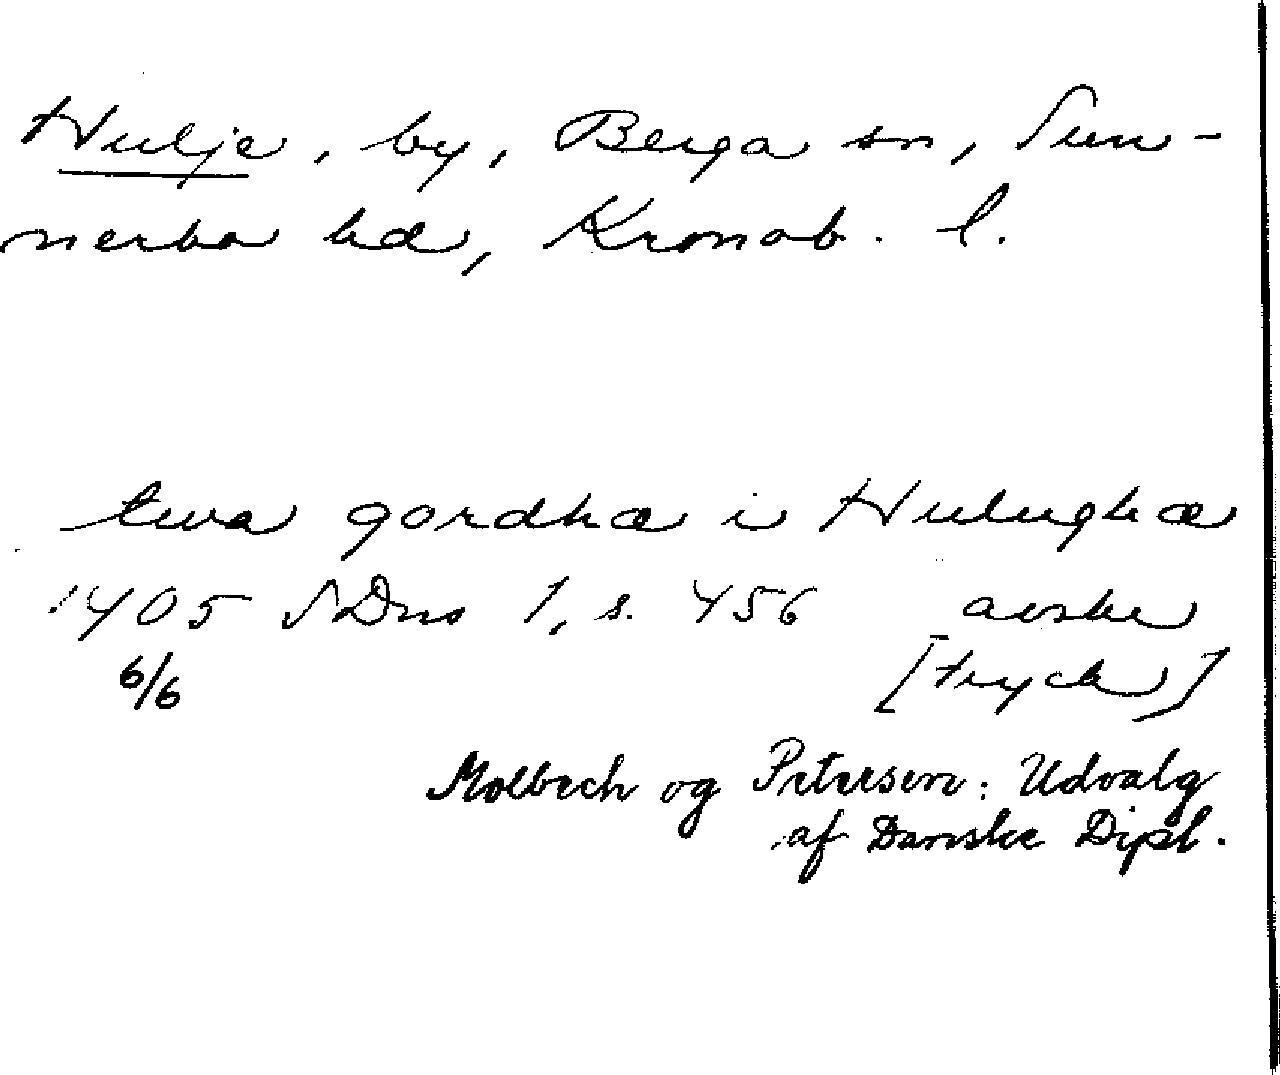 Hulje, by, Berga sn, Sun-
nerbo hd, Kronob. l.
twa gordhæ i Hulughæ
1405 SDns 1, s. 456 avskr
6/6 [tryck]
Molbech og Petersen: Udvalg
af Danske Dipl.